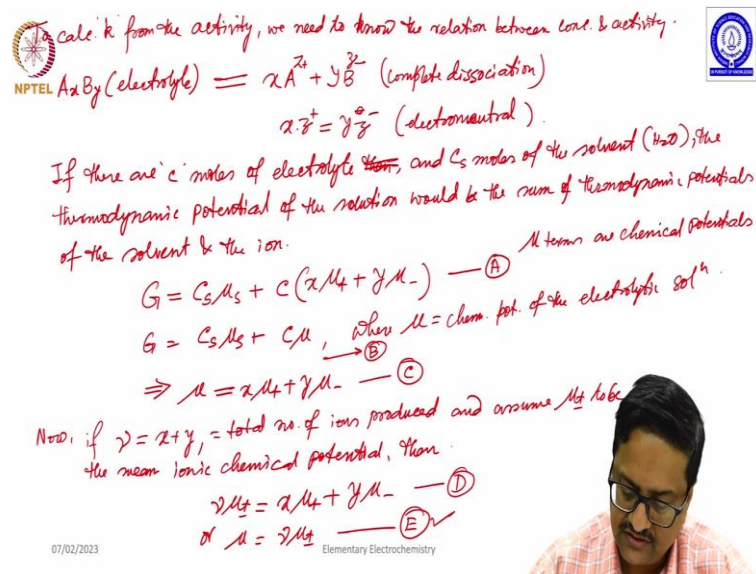 To calc. k from the activity, we need to know the relation between conc. & activity.
NPTEL
AxBy (electrolyte) = xA^z+ + yB^z- (complete dissociation)
x.z+ = y z- (electroneutral).
If there are 'c' moles of electrolyte and Cs moles of the solvent (H2O), the
thermodynamic potential of the solution would be the sum of thermodynamic potentials
of the solvent & the ion.
μ terms are chemical potentials
G = Csμs + c(xμ+ + yμ-) — A
G = Csμs + cμ, where μ = chem. pot. of the electrolytic solⁿ.
→ B
⇒ μ = xμ+ + yμ- — C
Now, if ν = x+y, = total no. of ions produced and assume μ± to be
the mean ionic chemical potential, then
νμ± = xμ+ + yμ- — D
or μ = νμ± — E ✓
07/02/2023
Elementary Electrochemistry
IN PURSUIT OF KNOWLEDGE